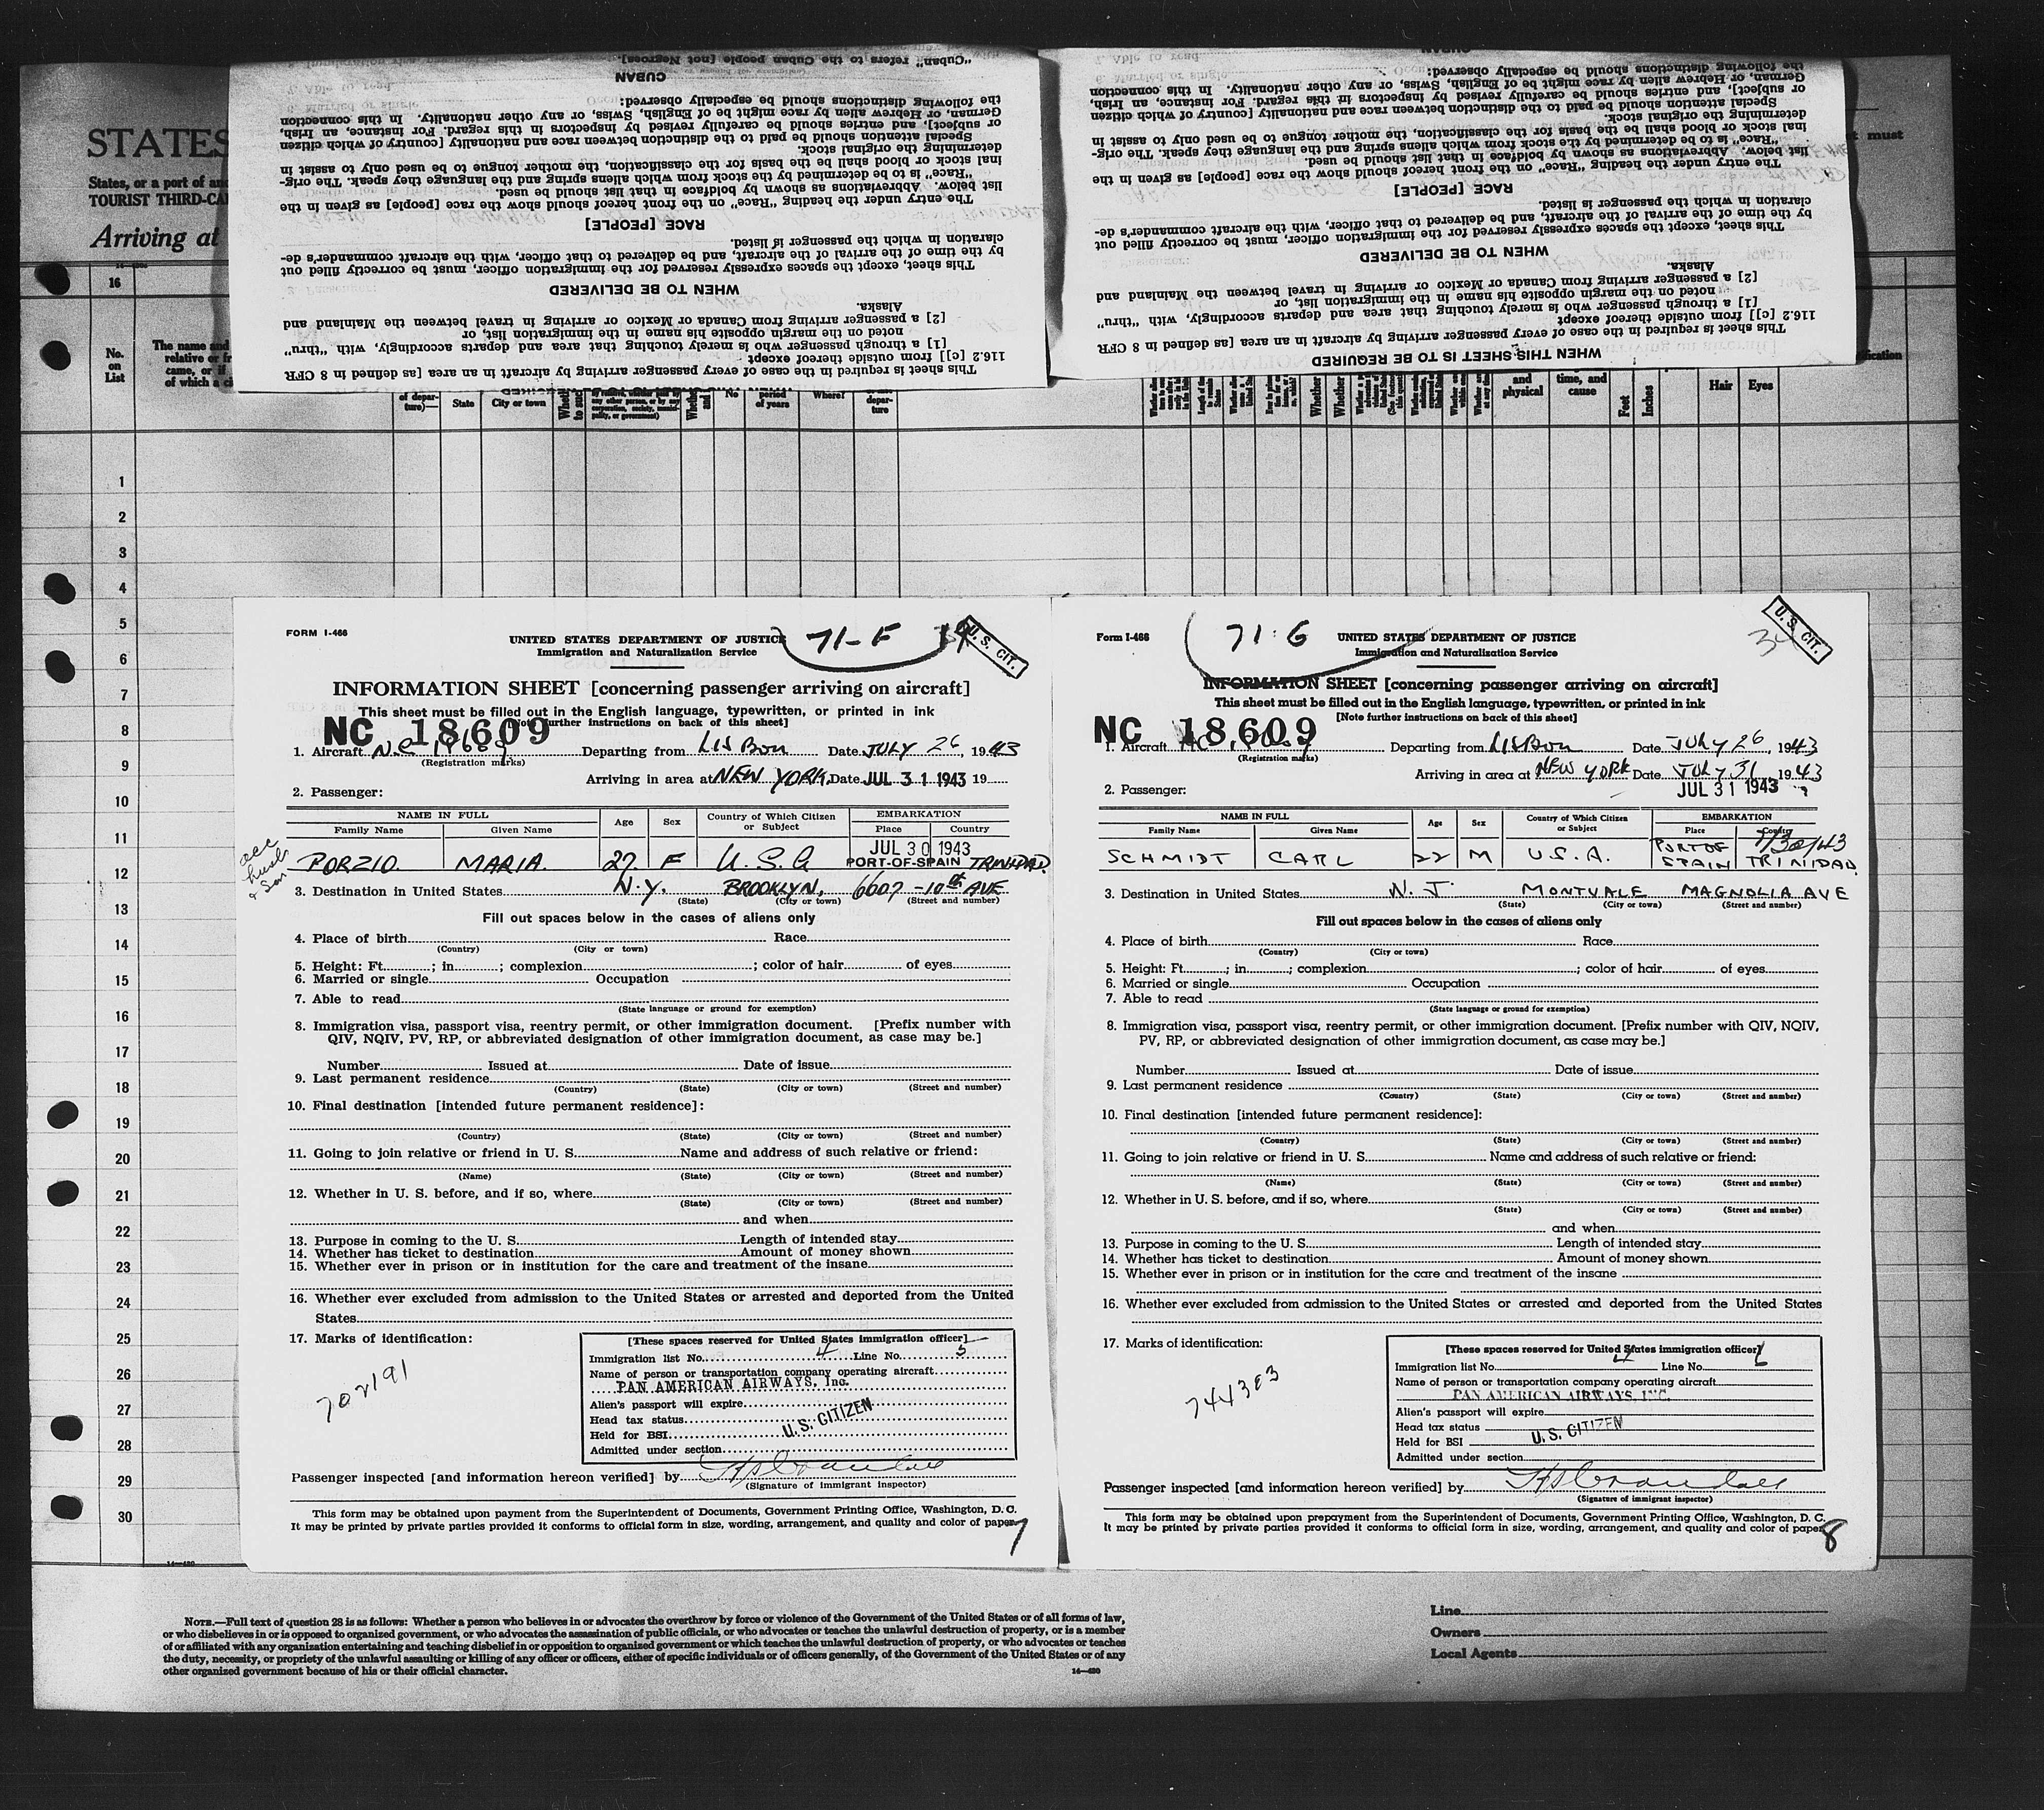 "Cuban" refers to the Cuban people [not Negroes].
CUBAN
the following distinctions should be especially observed:
German, or Hebrew alien by race might be of English, Swiss, or any other nationality. In this connection
or subject], and entries should be carefully revised by inspectors in this regard. For instance, an Irish,
Special attention should be paid to the distinction between race and nationality [country of which citizen
determining the original stock.
inal stock or blood shall be the basis for the classification, the mother tongue to be used only to assist in
"Race" is to be determined by the stock from which aliens spring and the language they speak. The orig-
list below. Abbreviations as shown by boldface in that list should be used.
The entry under the heading "Race" on the front hereof should show the race [people] as given in the
RACE [PEOPLE]
claration in which the passenger is listed.
by the time of the arrival of the aircraft, and be delivered to that officer, with the aircraft commander's de-
This sheet, except the spaces expressly reserved for the immigration officer, must be correctly filled out
WHEN TO BE DELIVERED
Alaska.
[2] a passenger arriving from Canada or Mexico or arriving in travel between the Mainland and
noted on the margin opposite his name in the immigration list, or
[1] a through passenger who is merely touching that area and departs accordingly, with "thru"
116.2 [c]] from outside thereof except
This sheet is required in the case of every passenger arriving by aircraft in an area [as defined in 8 CFR
CUBAN
the following distinctions should be especially observed:
German, or Hebrew alien by race might be of English, Swiss, or any other nationality. In this connection
or subject], and entries should be carefully revised by inspectors in this regard. For instance, an Irish,
Special attention should be paid to the distinction between race and nationality [country of which citizen
determining the original stock.
inal stock or blood shall be the basis for the classification, the mother tongue to be used only to assist in
"Race" is to be determined by the stock from which aliens spring and the language they speak. The orig-
list below. Abbreviations as shown by boldface in that list should be used.
The entry under the heading "Race" on the front hereof should show the race [people] as given in the
RACE [PEOPLE]
claration in which the passenger is listed.
by the time of the arrival of the aircraft, and be delivered to that officer, with the aircraft commander's de-
This sheet, except the spaces expressly reserved for the immigration officer, must be correctly filled out
WHEN TO BE DELIVERED
Alaska.
[2] a passenger arriving from Canada or Mexico or arriving in travel between the Mainland and
noted on the margin opposite his name in the immigration list, or
[1] a through passenger who is merely touching that area and departs accordingly, with "thru"
116.2 [c]] from outside thereof except
This sheet is required in the case of every passenger arriving by aircraft in an area [as defined in 8 CFR
WHEN THIS SHEET IS TO BE REQUIRED
STATES
States, or a port of an
TOURIST THIRD-CA
Arriving at
must
16
No. on List
The name and
relative or fr
came, or if
of which a ci
of departure)—
State
City or town
No
period of years
Where?
departure
and physical
time, and cause
Feet
Inches
Hair
Eyes
1
2
3
4
5
6
7
8
9
10
11
12
13
14
15
16
17
18
19
20
21
22
23
24
25
26
27
28
29
30
FORM I-466
71-F
U. S. CIT.
UNITED STATES DEPARTMENT OF JUSTICE
Immigration and Naturalization Service
INFORMATION SHEET [concerning passenger arriving on aircraft]
This sheet must be filled out in the English language, typewritten, or printed in ink
[Note further instructions on back of this sheet]
NC 18609
1. Aircraft N.C 18609 Departing from LISBON Date JULY 26, 1943
(Registration marks)
Arriving in area at NEW YORK Date JUL 31 1943 19
2. Passenger:
NAME IN FULL Age Sex Country of Which Citizen or Subject EMBARKATION
Family Name Given Name Place Country
JUL 30 1943
PORZIO. MARIA. 27. F U.S.A PORT-OF-SPAIN TRINIDAD.
acc husb & son
3. Destination in United States N.Y. BROOKLYN, 6607 -10th AVE
(State) (City or town) (Street and number)
Fill out spaces below in the cases of aliens only
4. Place of birth Race
(Country) (City or town)
5. Height: Ft. ; in. ; complexion ; color of hair of eyes
6. Married or single Occupation
7. Able to read
(State language or ground for exemption)
8. Immigration visa, passport visa, reentry permit, or other immigration document. [Prefix number with
QIV, NQIV, PV, RP, or abbreviated designation of other immigration document, as case may be.]
Number Issued at Date of issue
9. Last permanent residence
(Country) (State) (City or town) (Street and number)
10. Final destination [intended future permanent residence]:
(Country) (State) (City or town) (Street and number)
11. Going to join relative or friend in U. S. Name and address of such relative or friend:
(Name) (State) (City or town) (Street and number)
12. Whether in U. S. before, and if so, where
(State) (City or town) (Street and number)
and when
13. Purpose in coming to the U. S. Length of intended stay
14. Whether has ticket to destination Amount of money shown
15. Whether ever in prison or in institution for the care and treatment of the insane
16. Whether ever excluded from admission to the United States or arrested and deported from the United
States
17. Marks of identification:
702191
[These spaces reserved for United States immigration officer]
Immigration list No. 4 Line No. 5
Name of person or transportation company operating aircraft
PAN AMERICAN AIRWAYS, Inc.
Alien's passport will expire
Head tax status
U. S. CITIZEN
Held for BSI
Admitted under section
Passenger inspected [and information hereon verified] by
(Signature of immigrant inspector)
This form may be obtained upon payment from the Superintendent of Documents, Government Printing Office, Washington, D. C.
It may be printed by private parties provided it conforms to official form in size, wording, arrangement, and quality and color of paper.
7
Form I-466
71-G
34
U. S. CIT.
UNITED STATES DEPARTMENT OF JUSTICE
Immigration and Naturalization Service
INFORMATION SHEET [concerning passenger arriving on aircraft]
This sheet must be filled out in the English language, typewritten, or printed in ink
[Note further instructions on back of this sheet]
NC 18609
1. Aircraft Departing from LISBON Date JULY 26, 1943
(Registration marks)
Arriving in area at NEW YORK Date JULY 31 1943
JUL 31 1943
2. Passenger:
NAME IN FULL Age Sex Country of Which Citizen or Subject EMBARKATION
Family Name Given Name Place Country
7/30/43
SCHMIDT CARL 22 M U.S.A. PORT OF SPAIN TRINIDAD
3. Destination in United States N. J. MONTVALE MAGNOLIA AVE
(State) (City or town) (Street and number)
Fill out spaces below in the cases of aliens only
4. Place of birth Race
(Country) (City or town)
5. Height: Ft. ; in. ; complexion ; color of hair of eyes
6. Married or single Occupation
7. Able to read
(State language or ground for exemption)
8. Immigration visa, passport visa, reentry permit, or other immigration document. [Prefix number with QIV, NQIV,
PV, RP, or abbreviated designation of other immigration document, as case may be.]
Number Issued at Date of issue
9. Last permanent residence
(Country) (State) (City or town) (Street and number)
10. Final destination [intended future permanent residence]:
(Country) (State) (City or town) (Street and number)
11. Going to join relative or friend in U. S. Name and address of such relative or friend:
(Name) (State) (City or town) (Street and number)
12. Whether in U. S. before, and if so, where
(State) (City or town) (Street and number)
and when
13. Purpose in coming to the U. S. Length of intended stay
14. Whether has ticket to destination Amount of money shown
15. Whether ever in prison or in institution for the care and treatment of the insane
16. Whether ever excluded from admission to the United States or arrested and deported from the United States
17. Marks of identification:
744303
[These spaces reserved for United States immigration officer]
Immigration list No. 4 Line No. 6
Name of person or transportation company operating aircraft
PAN AMERICAN AIRWAYS, INC.
Alien's passport will expire
Head tax status
U. S. CITIZEN
Held for BSI
Admitted under section
Passenger inspected [and information hereon verified] by
(Signature of immigrant inspector)
This form may be obtained upon prepayment from the Superintendent of Documents, Government Printing Office, Washington, D. C.
It may be printed by private parties provided it conforms to official form in size, wording, arrangement, and quality and color of paper.
8
NOTE.—Full text of question 28 is as follows: Whether a person who believes in or advocates the overthrow by force or violence of the Government of the United States or of all forms of law,
or who disbelieves in or is opposed to organized government, or who advocates the assassination of public officials, or who advocates or teaches the unlawful destruction of property, or is a member
of or affiliated with any organization entertaining and teaching disbelief in or opposition to organized government or which teaches the unlawful destruction of property, or who advocates or teaches
the duty, necessity, or propriety of the unlawful assaulting or killing of any officer or officers, either of specific individuals or of officers generally, of the Government of the United States or of any
other organized government because of his or their official character.
14—420
Line
Owners
Local Agents